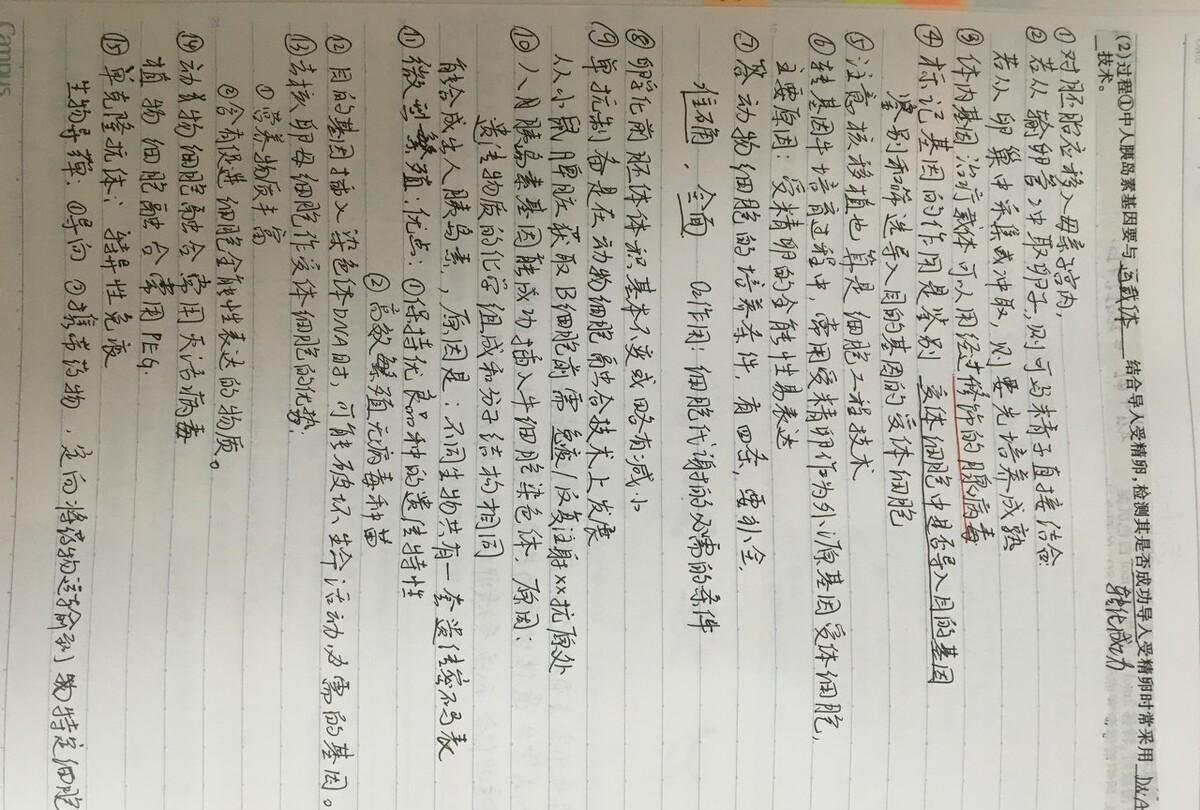 (2)过程①中人胰岛素基因要与 运载体 结合导入受精卵,检测其是否成功导入受精卵时常采用 DNA
技术。
转化成功
①对胚胎应移入母亲宫内,
②若从输卵管冲取卵子,则可与精子直接结合
若从卵巢中采集或冲取,则要先培养成熟
③体内基因治疗载体可以用经过修饰的腺病毒
④标记基因的作用是鉴别受体细胞中是否导入目的基因
鉴别和筛选导入目的基因的受体细胞
⑤注意核移植也算是细胞工程技术
⑥转基因牛培育过程中,常用受精卵作为外源基因受体细胞,
主要原因:受精卵的全能性易表达
⑦答动物细胞的培养条件,有四条,要补全.
准确,全面 O₂作用:细胞代谢的必需的条件
⑧孵化前胚体体积基本不变或略有减小
⑨单抗制备是在动物细胞融合技术上发展
从小鼠脾脏获取B细胞前需免疫/反复注射xx抗原处
⑩人胰岛素基因能成功插入牛细胞染色体,原因:
遗传物质的化学组成和分子结构相同
能合成出人胰岛素,原因是:不同生物共有一套遗传密码表
⑪微型繁殖:优点:①保持优良品种的遗传特性
②高效繁殖无病毒种苗
⑫目的基因插入染色体DNA时,可能破坏生命活动必需的基因。
⑬去核卵母细胞作受体细胞的优势.
①营养物质丰富
②含有促进细胞全能性表达的物质。
⑭动物细胞融合常用灭活病毒
植物细胞融合常用PEG.
⑮单克隆抗体:特异性免疫
生物导弹:①导向 ②携带药物,定向将药物运输到特定细胞
Campus